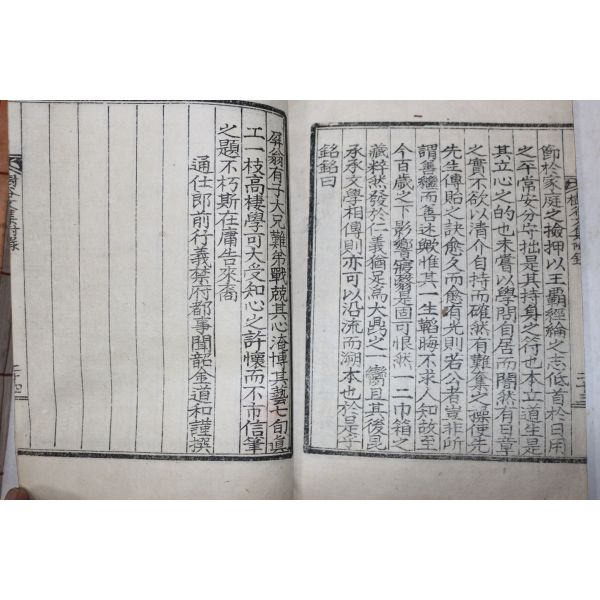 節於家庭之檢押以王霸經綸之志低首於日用
之牟常安分守拙是其持身之符也本立道生是
其立心之的也未嘗以學問自居而闇然有日章
之實不欲以清介自持而確然有難奪之操使先
先生傳貽之訣愈久而愈有光則若公者豈非所
謂善繼而善述歟惟其一生韜晦不求人知故至
今百歲之下影響寢翳是固可恨然一二巾箱之
藏粹然發於仁義猶足爲大鼎之一臠且其後昆
承承文學相傳則亦可以沿流而溯本也於是乎
銘銘曰
屛翁有子大兄難弟戰兢其心淹博其藝七旬眞
工一枝高棲學可大受知心之許懷而不市信筆
之題不朽斯在庸告來裔
通仕郞前行義禁府都事聞韶金道和謹撰